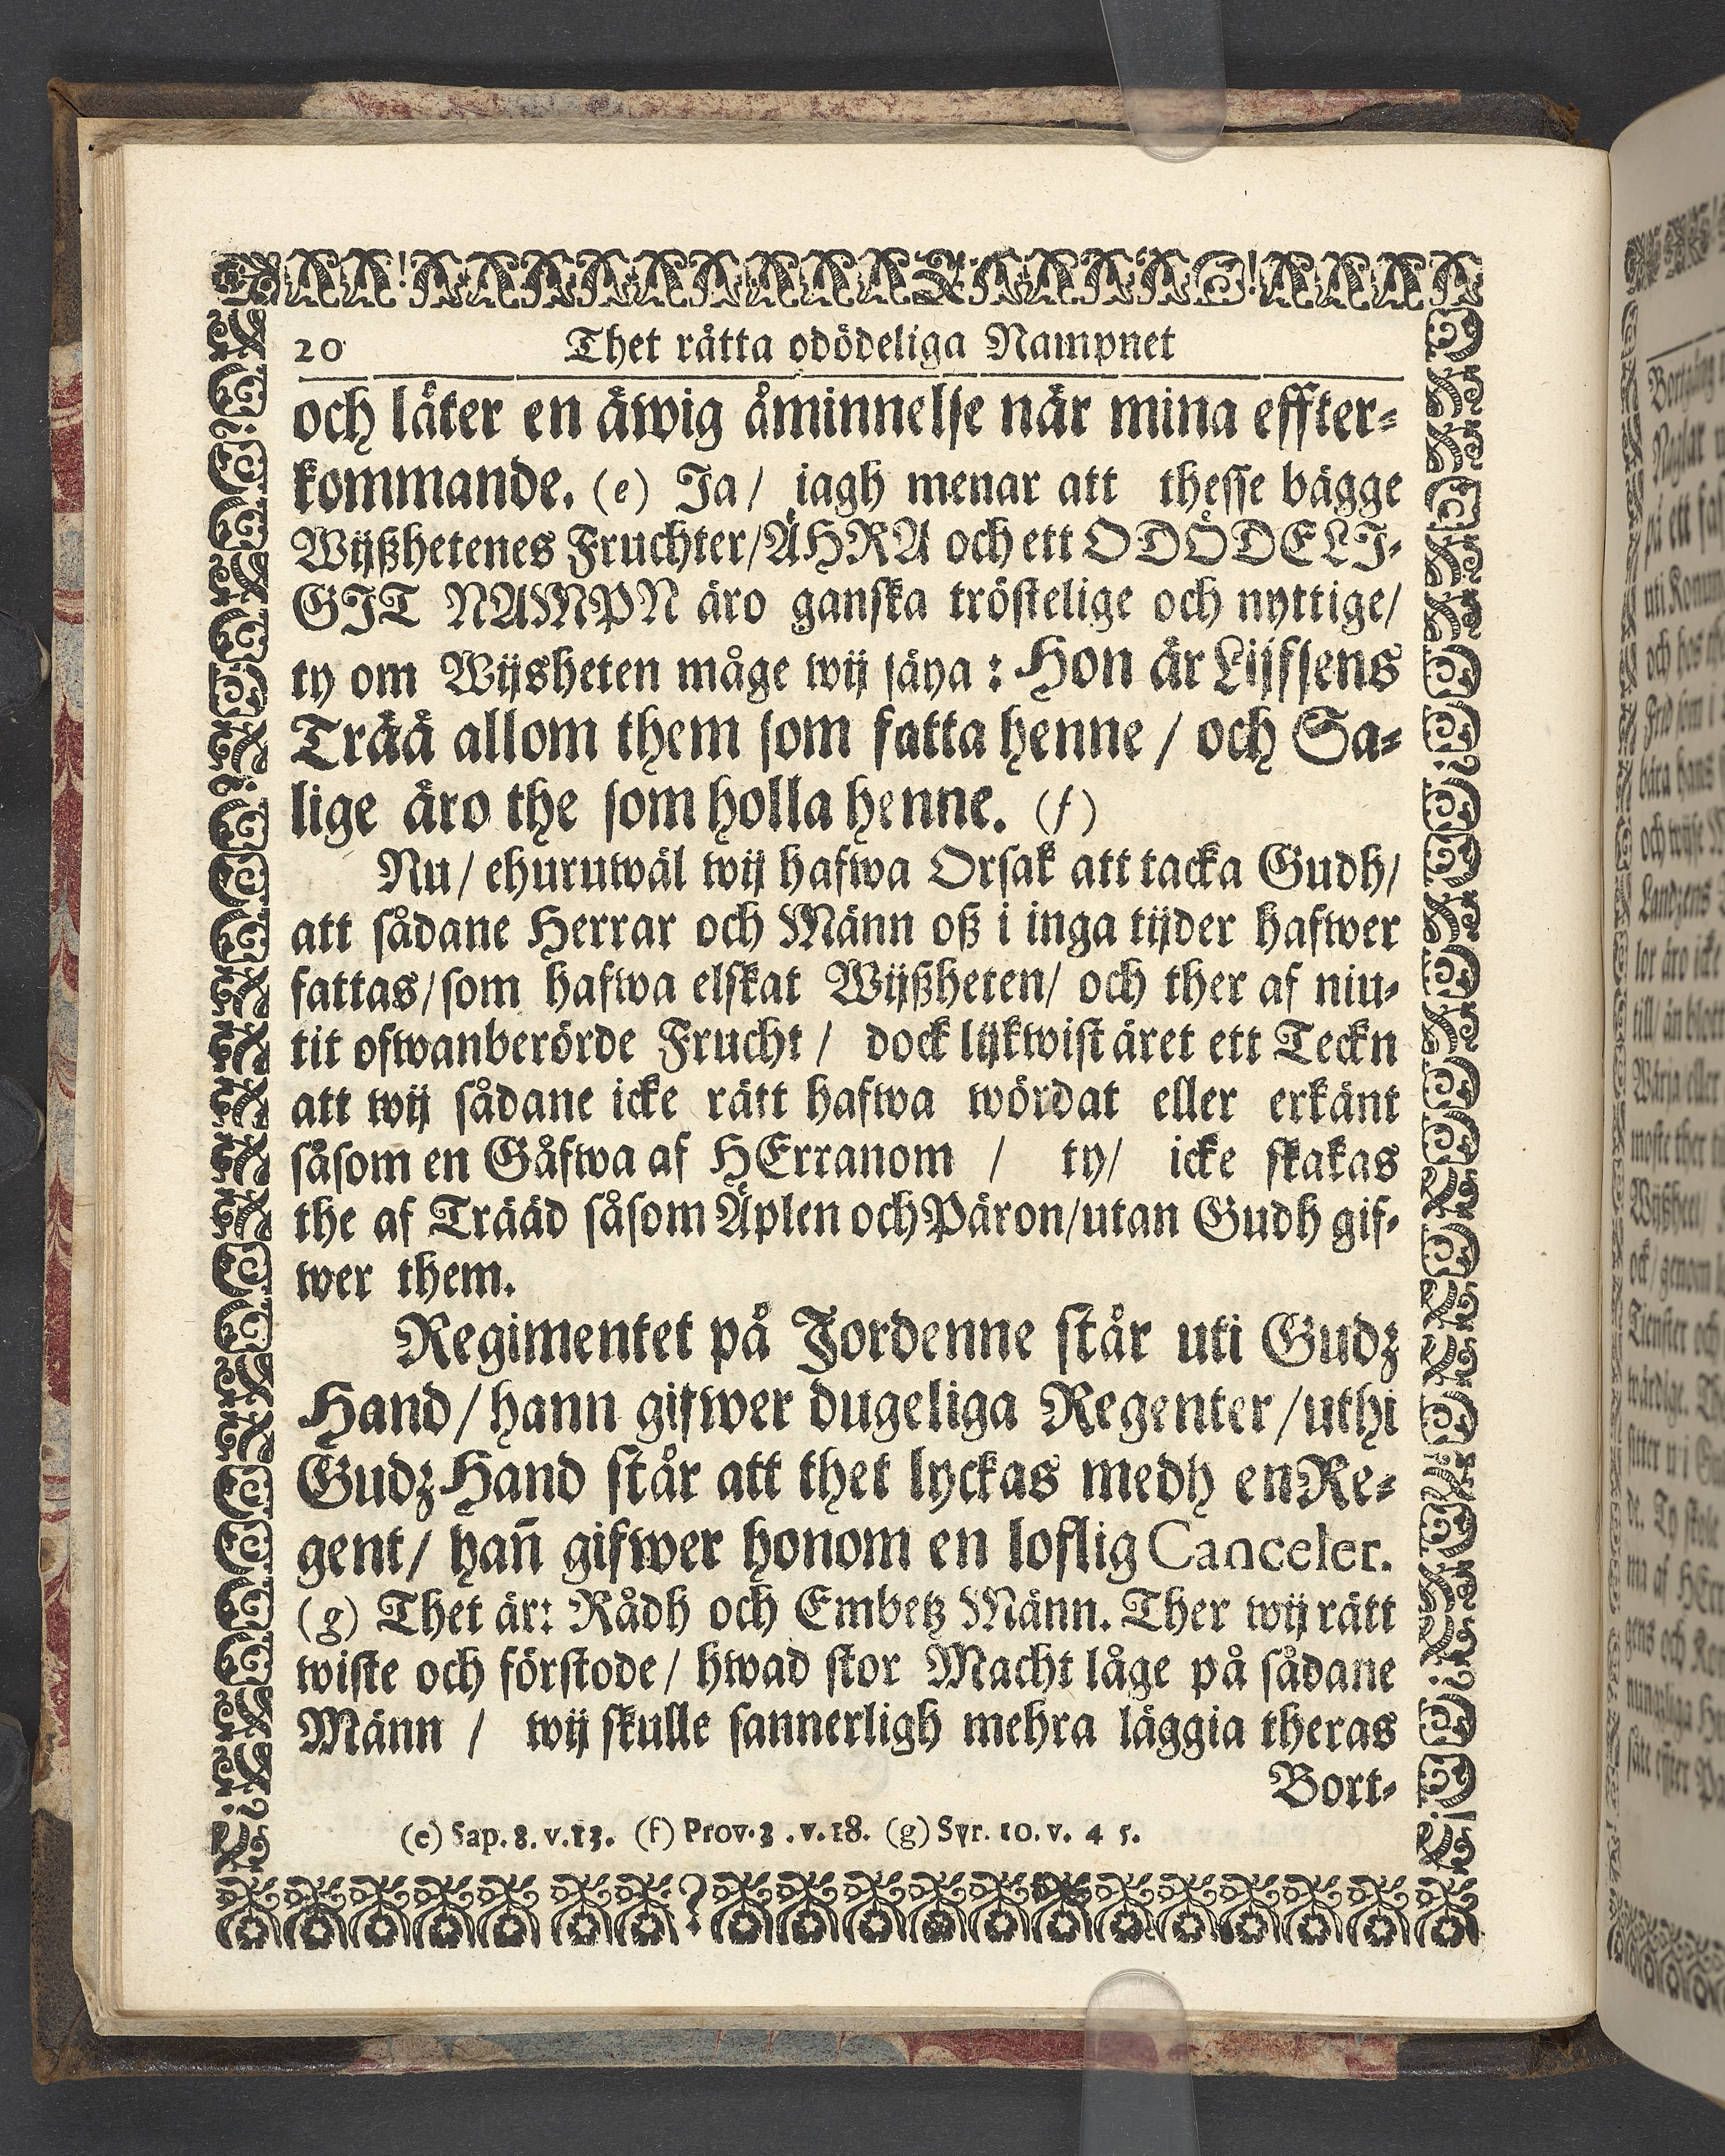 20 Thet rätta odödeliga Nampnet
och låter en äwig åminnelse när mina effter-
kommande. (e) Ja/ iagh menar att thesse bägge
Wijßhetenes Fruchter/ÄHRA och ett ODÖDELI-
GIT NAMPN äro ganska tröstelige och nyttige/
ty om Wijsheten måge wij säya: Hon är Lijfsens
Trää allom them som fatta henne / och Sa-
lige äro the som holla henne. (f)
Nu/ ehuruwäl wij hafwa Orsak att tacka Gudh/
att sådane Herrar och Männ oß i inga tijder hafwer
fattas/som hafwa elskat Wijßheten/ och ther af niu-
tit ofwanberörde Frucht / dock lijkwist äret ett Teckn
att wij sådane icke rätt hafwa wördat eller erkänt
såsom en Gåfwa af HErranom / ty/ icke skakas
the af Trääd såsom Äplen och Päron/utan Gudh gif-
wer them.
Regimentet på Jordenne står uti Gudz
Hand/hann gifwer dugeliga Regenter/uthi
Gudz Hand står att thet lyckas medh en Re-
gent/ hañ gifwer honom en loflig Canceler.
(g) Thet är: Rådh och Embetz Männ. Ther wij rätt
wiste och förstode/ hwad stor Macht låge på sådane
Männ / wij skulle sannerligh mehra läggia theras
Bort-
(e) Sap. 8. v.13. (f) Prov. 3 .v.18. (g) Syr. 10. v. 4 5.